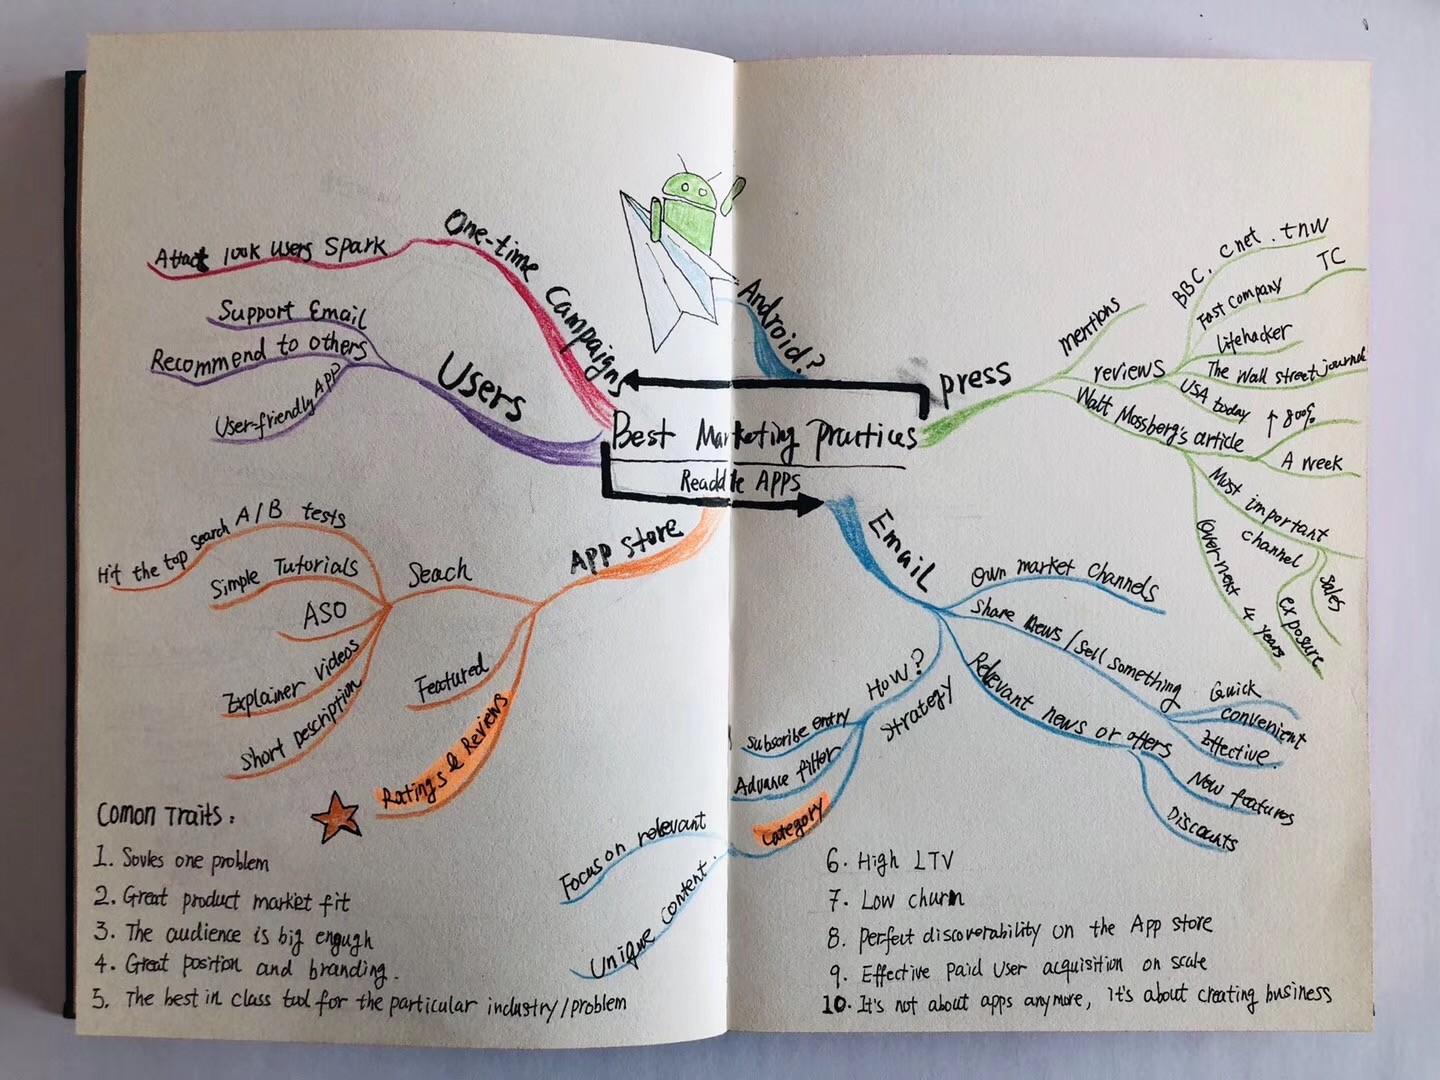 One-time Campaigns
Attact 100k users Spark
Users
Support Email
Recommend to others
User-friendly App
Android?
Best Marketing Practices
Readdle APPS
press
mentions
reviews
BBC, Cnet . tnw
TC
Fast company
lifehacker
The Wall street journal
USA today
Walt Mossberg's article
↑ 800%
A week
Must important channel
sales
exposure
over next 4 years
App store
Seach
A/B tests
Hit the top search
Simple Tutorials
ASO
Explainer videos
Short Description
Featured
Ratings & Reviews
Email
Own market Channels
Share news / sell something
Quick
convenient
Effective.
Relevant news or offers
New features
Discounts
How?
Strategy
Subscribe entry
Advance filter
Category
Focus on relevant
Unique content.
Comon Traits:
1. Sovles one problem
2. Great product market fit
3. The audience is big engugh
4. Great position and branding.
5. The best in class tool for the particular industry/problem
6. High LTV
7. Low churn
8. perfect discoverability on the App store
9. Effective Paid User acquisition on scale
10. It's not about apps anymore, it's about creating business